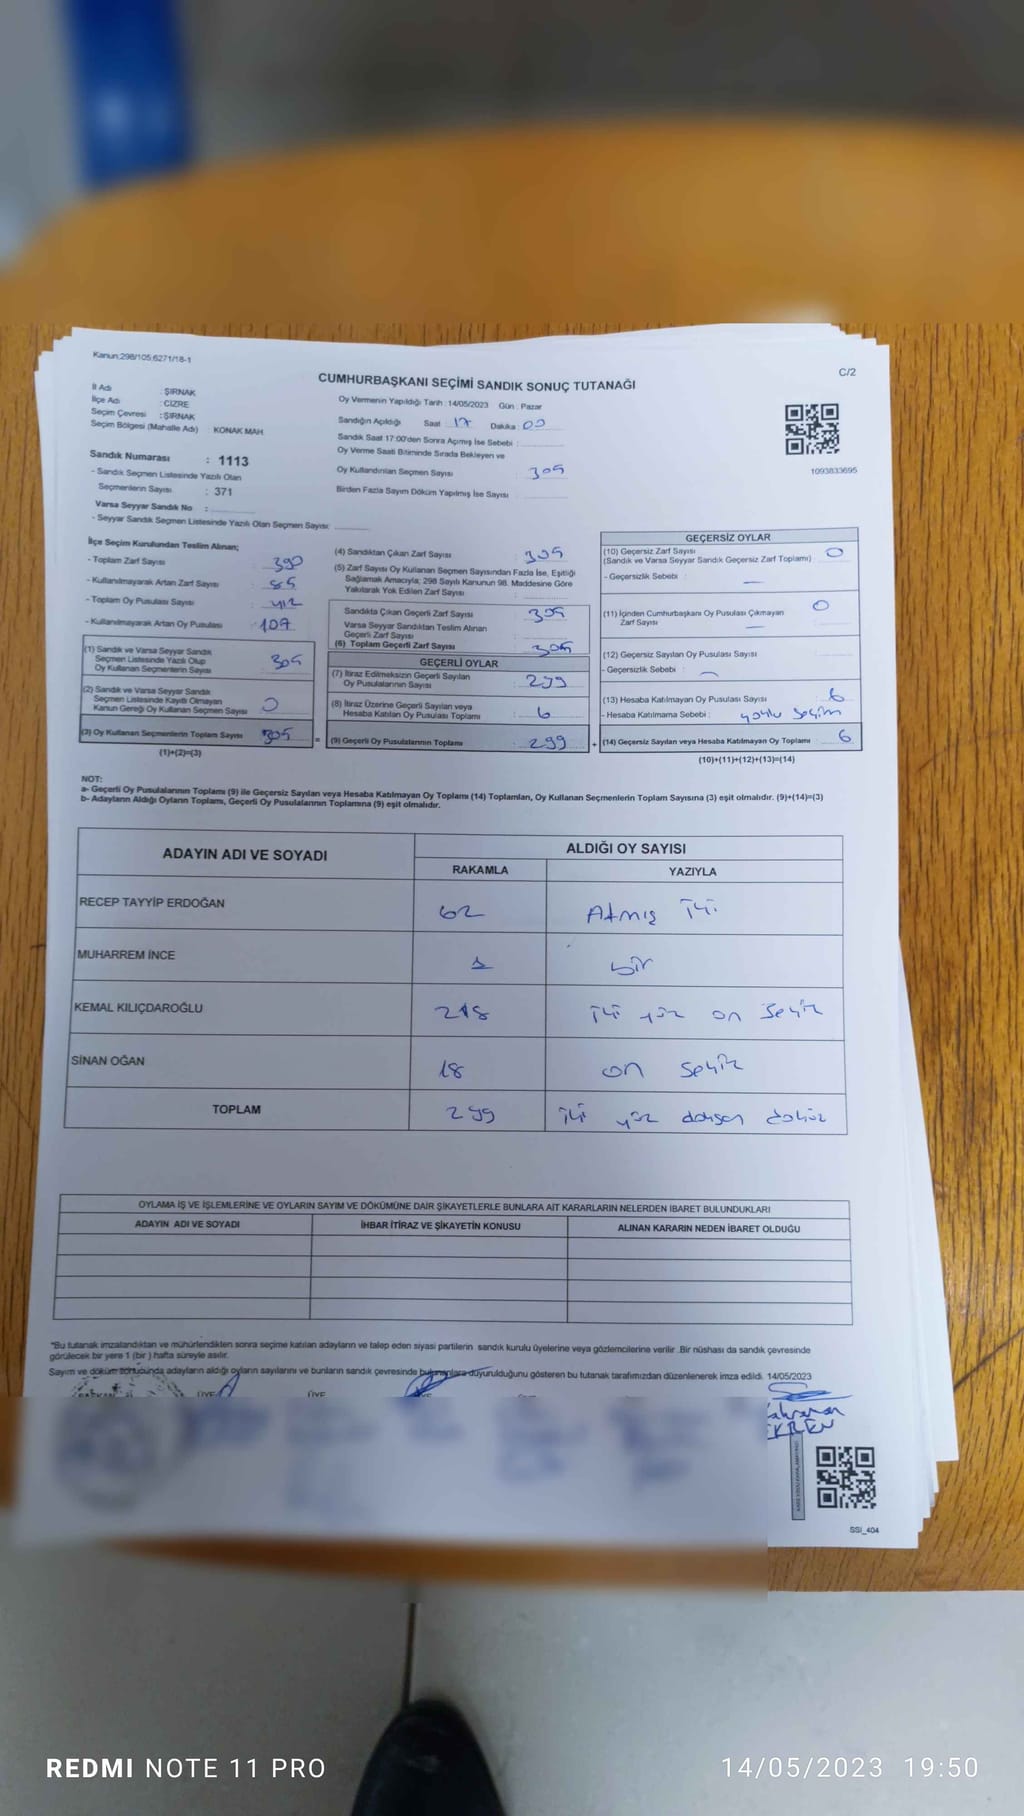 Kanun:298/105;6271/18-1
C/2
CUMHURBAŞKANI SEÇİMİ SANDIK SONUÇ TUTANAĞI
İl Adı : ŞIRNAK
İlçe Adı : CİZRE
Seçim Çevresi : ŞIRNAK
Seçim Bölgesi (Mahalle Adı) KONAK MAH
Sandık Numarası : 1113
- Sandık Seçmen Listesinde Yazılı Olan
Seçmenlerin Sayısı : 371
Varsa Seyyar Sandık No :
- Seyyar Sandık Seçmen Listesinde Yazılı Olan Seçmen Sayısı:
Oy Vermenin Yapıldığı Tarih : 14/05/2023 Gün : Pazar
Sandığın Açıldığı Saat : 17 Dakika : 00
Sandık Saat 17:00'den Sonra Açımış İse Sebebi :
Oy Verme Saati Bitiminde Sırada Bekleyen ve
Oy Kullandırılan Seçmen Sayısı : 305
Birden Fazla Sayım Döküm Yapılmış İse Sayısı :
1093833695
İlçe Seçim Kurulundan Teslim Alınan;
- Toplam Zarf Sayısı : 390
- Kullanılmayarak Artan Zarf Sayısı : 85
- Toplam Oy Pusulası Sayısı : 412
- Kullanılmayarak Artan Oy Pusulası : 107
(1) Sandık ve Varsa Seyyar Sandık
Seçmen Listesinde Yazılı Olup
Oy Kullanan Seçmenlerin Sayısı 305
(2) Sandık ve Varsa Seyyar Sandık
Seçmen Listesinde Kayıtlı Olmayan
Kanun Gereği Oy Kullanan Seçmen Sayısı 0
(3) Oy Kullanan Seçmenlerin Toplam Sayısı 305 =
(1)+(2)=(3)
(4) Sandıktan Çıkan Zarf Sayısı : 305
(5) Zarf Sayısı Oy Kullanan Seçmen Sayısından Fazla İse, Eşitliği
Sağlamak Amacıyla; 298 Sayılı Kanunun 98. Maddesine Göre
Yakılarak Yok Edilen Zarf Sayısı :
Sandıkta Çıkan Geçerli Zarf Sayısı : 305
Varsa Seyyar Sandıktan Teslim Alınan
Geçerli Zarf Sayısı :
(6) Toplam Geçerli Zarf Sayısı : 305
GEÇERLİ OYLAR
(7) İtiraz Edilmeksizin Geçerli Sayılan
Oy Pusulalarının Sayısı : 299
(8) İtiraz Üzerine Geçerli Sayılan veya
Hesaba Katılan Oy Pusulası Toplamı : 6
(9) Geçerli Oy Pusulalarının Toplamı : 299 +
GEÇERSİZ OYLAR
(10) Geçersiz Zarf Sayısı : 0
(Sandık ve Varsa Seyyar Sandık Geçersiz Zarf Toplamı)
- Geçersizlik Sebebi : —
(11) İçinden Cumhurbaşkanı Oy Pusulası Çıkmayan : 0
Zarf Sayısı —
(12) Geçersiz Sayılan Oy Pusulası Sayısı :
- Geçersizlik Sebebi : —
(13) Hesaba Katılmayan Oy Pusulası Sayısı : 6
- Hesaba Katılmama Sebebi : seçim
(14) Geçersiz Sayılan veya Hesaba Katılmayan Oy Toplamı : 6
(10)+(11)+(12)+(13)=(14)
NOT:
a- Geçerli Oy Pusulalarının Toplamı (9) ile Geçersiz Sayılan veya Hesaba Katılmayan Oy Toplamı (14) Toplamları, Oy Kullanan Seçmenlerin Toplam Sayısına (3) eşit olmalıdır. (9)+(14)=(3)
b- Adayların Aldığı Oyların Toplamı, Geçerli Oy Pusulalarının Toplamına (9) eşit olmalıdır.
ADAYIN ADI VE SOYADI ALDIĞI OY SAYISI
RAKAMLA YAZIYLA
RECEP TAYYİP ERDOĞAN 62 Atmış iki
MUHARREM İNCE 1 bir
KEMAL KILIÇDAROĞLU 218 iki yüz on sekiz
SİNAN OĞAN 18 on sekiz
TOPLAM 299 iki yüz doksan dokuz
OYLAMA İŞ VE İŞLEMLERİNE VE OYLARIN SAYIM VE DÖKÜMÜNE DAİR ŞİKAYETLERLE BUNLARA AİT KARARLARIN NELERDEN İBARET BULUNDUKLARI
ADAYIN ADI VE SOYADI İHBAR İTİRAZ VE ŞİKAYETİN KONUSU ALINAN KARARIN NEDEN İBARET OLDUĞU
*Bu tutanak imzalandıktan ve mühürlendikten sonra seçime katılan adayların ve talep eden siyasi partilerin sandık kurulu üyelerine veya gözlemcilerine verilir .Bir nüshası da sandık çevresinde
görülecek bir yere 1 (bir ) hafta süreyle asılır.
Sayım ve döküm sonucunda adayların aldığı oyların sayılarını ve bunların sandık çevresinde bulunanlara duyurulduğunu gösteren bu tutanak tarafımızdan düzenlenerek imza edildi. 14/05/2023
BAŞKAN ÜYE ÜYE
SSI_404
REDMI NOTE 11 PRO
14/05/2023 19:50